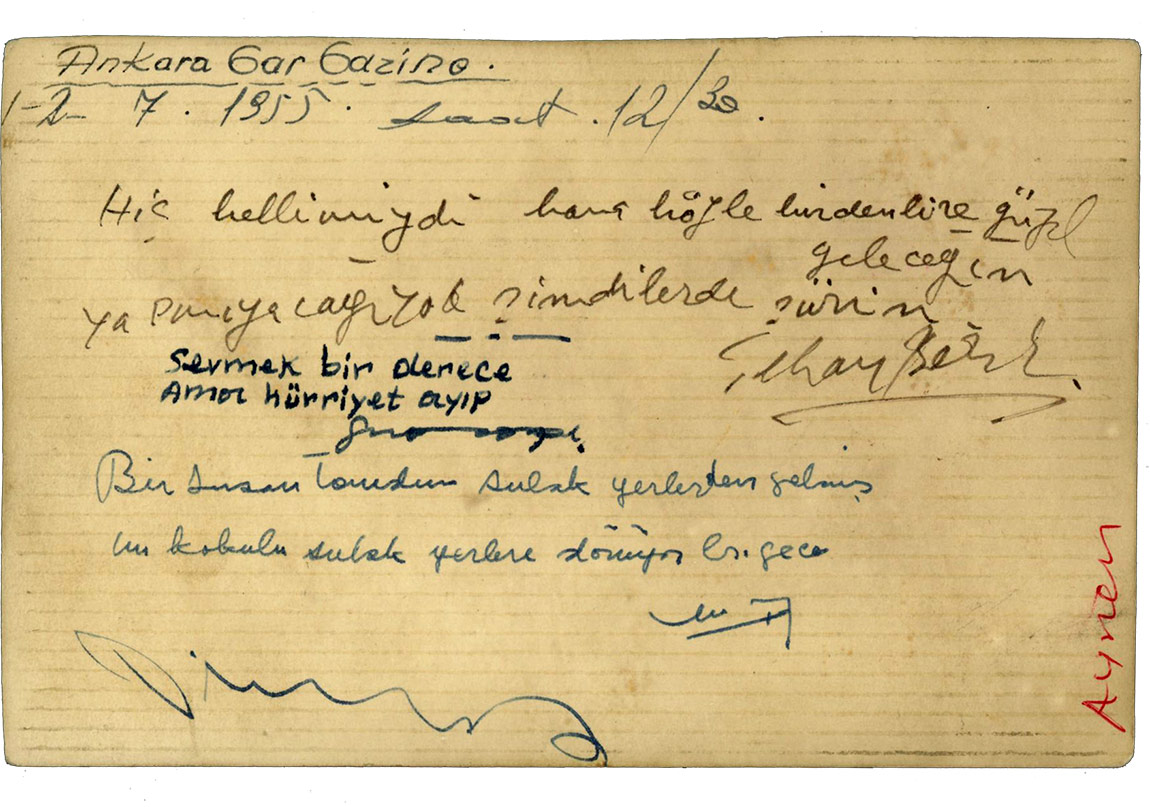 Ankara Gar Gazino.
1-2- 7. 1955. saat. 12/30.
Hiç bellimiydi bana böyle birdenbire güzel
geleceğin
yapmıyacağı yok şimdilerde şiirin
İlhan Berk
Sevmek bir derece
Ama hürriyet ayıp
Bir insan tanıdım sulak yerlerden gelmiş
un kokulu sulak yerlere dönüyor bu gece
Aynen